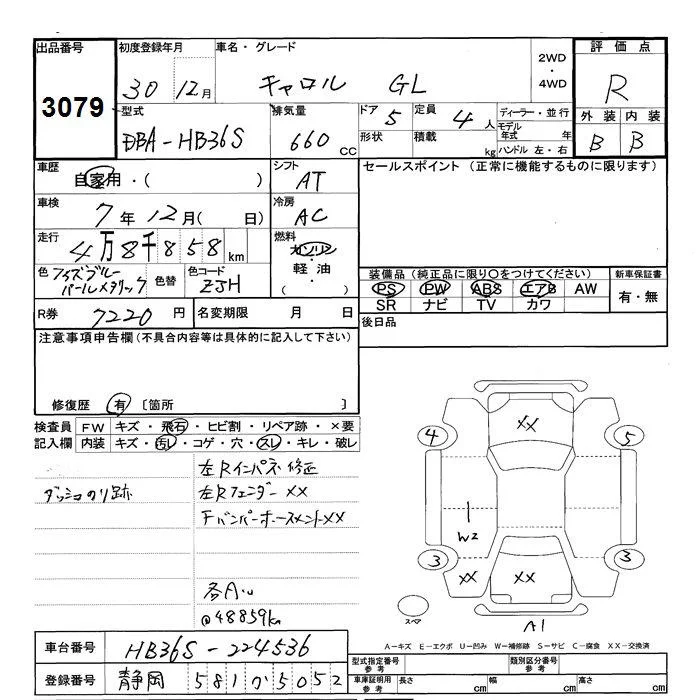 出品番号 3079
初度登録年月 30 12月
車名・グレード キャロル GL
2WD・4WD
評価点 R
外装 B 内装 B
型式 DBA-HB36S
排気量 660 CC
ドア 5 定員 4 人
形状 積載 kg
ディーラー・並行
モデル年式 年
ハンドル 左・右
車歴 自家用・( )
シフト AT
セールスポイント (正常に機能するものに限ります)
車検 7年12月( 日)
冷房 AC
走行 4万8千858km
燃料 ガソリン・軽油・( )
色
パールメタリック
色替
色コード ZJH
装備品(純正品に限り○をつけてください)
PS PW ABS エアB AW
SR ナビ TV カワ
新車保証書 有・無
R券 7220 円
名変期限 月 日
後日品
注意事項申告欄(不具合内容等は具体的に記入して下さい)
修復歴 有 [箇所 ]
検査員記入欄
FW キズ・飛石・ヒビ割・リペア跡・×要
内装 キズ・汚レ・コゲ・穴・スレ・キレ・破レ
左Rインパネ修正
ダッシュのり跡
左Rフェンダー XX
FバンパーホースメントXX
各A小
@48859km
XX
4
5
W2
3
3
XX
XX
スペア
A1
A-キズ E-エクボ U-凹み W-補修跡 S-サビ C-腐食 XX-交換済
車台番号 HB36S-224536
登録番号 静岡 581か5052
型式指定番号 参考
類別区分番号 参考
車庫証明用 参考
長さ cm 幅 cm 高さ cm